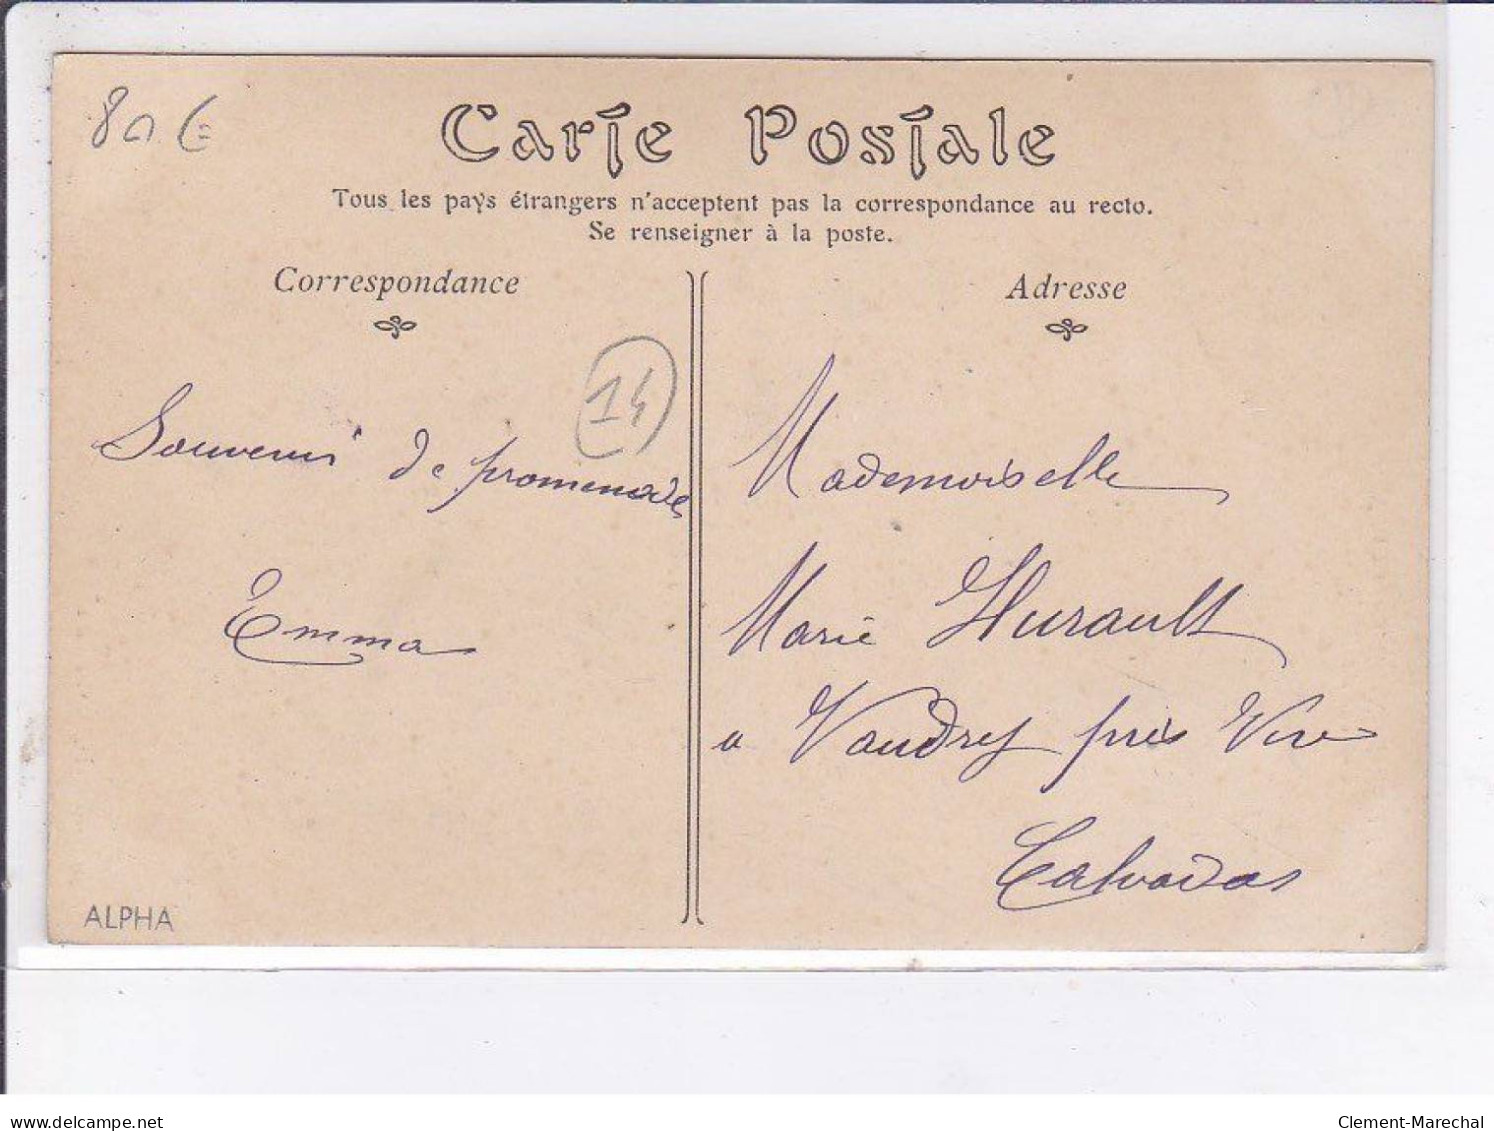 80 €
Carte Postale
Tous les pays étrangers n'acceptent pas la correspondance au recto.
Se renseigner à la poste.
Correspondance
14
Souvenir de promenade
Emma
ALPHA
Adresse
Mademoiselle
Marie Hurault
a Vaudry près Vire
Calvados
delcampe.net
Clement-Marechal